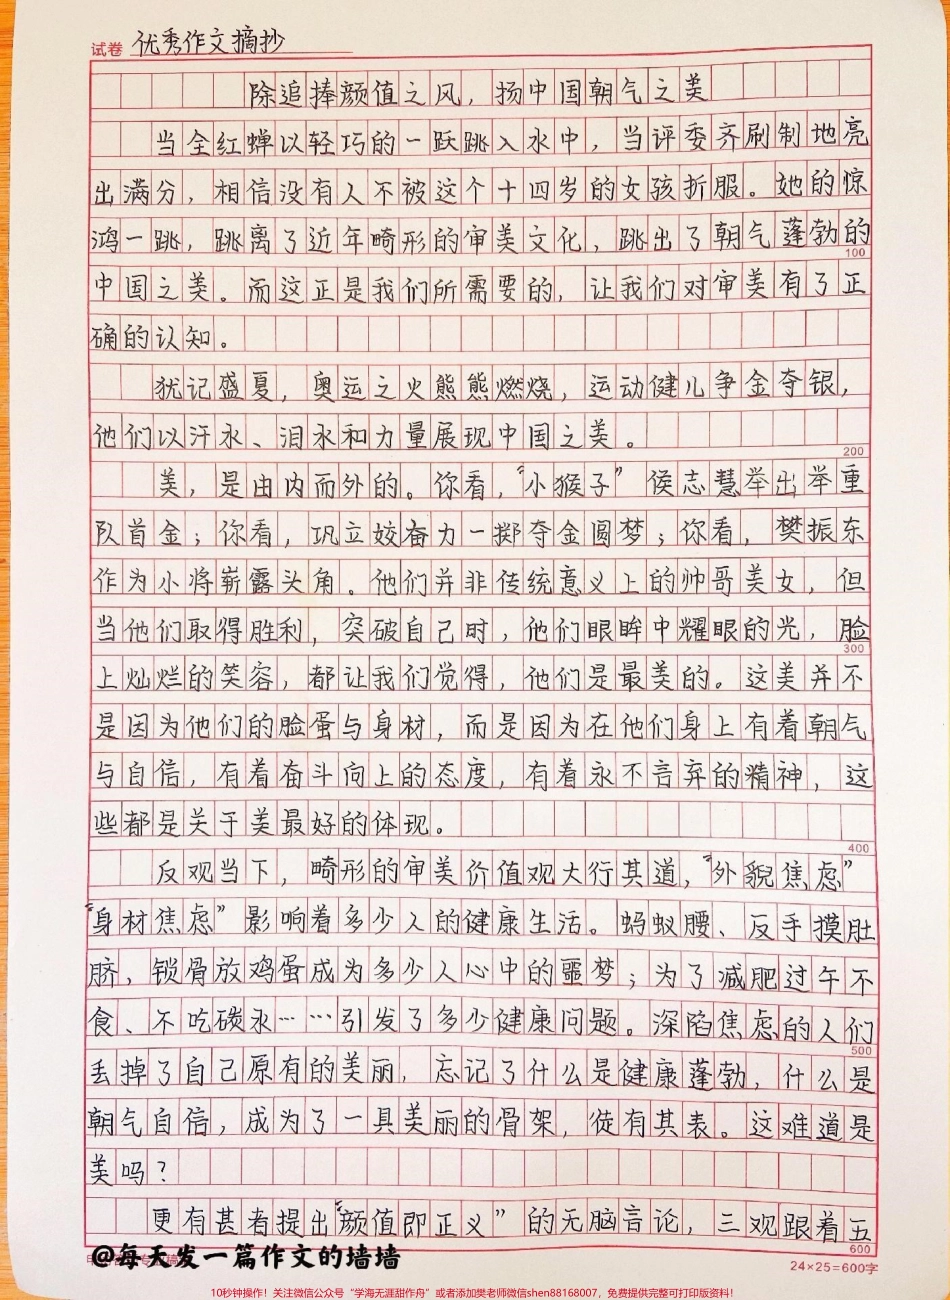 试卷 优秀作文摘抄
除追捧颜值之风，扬中国朝气之美
当全红蝉以轻巧的一跃跳入水中，当评委齐刷制地亮
出满分，相信没有人不被这个十四岁的女孩折服。她的惊
鸿一跳，跳离了近年畸形的审美文化，跳出了朝气蓬勃的
100
中国之美。而这正是我们所需要的，让我们对审美有了正
确的认知。
犹记盛夏，奥运之火熊熊燃烧，运动健儿争金夺银，
他们以汗水、泪水和力量展现中国之美。
200
美，是由内而外的。你看，“小猴子”侯志慧举出举重
队首金；你看，巩立姣奋力一掷夺金圆梦；你看，樊振东
作为小将崭露头角。他们并非传统意义上的帅哥美女，但
当他们取得胜利，突破自己时，他们眼眸中耀眼的光，脸
300
上灿烂的笑容，都让我们觉得，他们是最美的。这美并不
是因为他们的脸蛋与身材，而是因为在他们身上有着朝气
与自信，有着奋斗向上的态度，有着永不言弃的精神，这
些都是关于美最好的体现。
400
反观当下，畸形的审美价值观大行其道，“外貌焦虑”
“身材焦虑”影响着多少人的健康生活。蚂蚁腰、反手摸肚
脐，锁骨放鸡蛋成为多少人心中的噩梦；为了减肥过午不
食、不吃碳水……引发了多少健康问题。深陷焦虑的人们
500
丢掉了自己原有的美丽，忘记了什么是健康蓬勃，什么是
朝气自信，成为了一具美丽的骨架，徒有其表。这难道是
美吗？
更有甚者提出“颜值即正义”的无脑言论，三观跟着五
600
@每天发一篇作文的墙墙
24×25=600字
10秒钟操作！关注微信公众号“学海无涯甜作舟”或者添加樊老师微信shen88168007，免费提供完整可打印版资料！